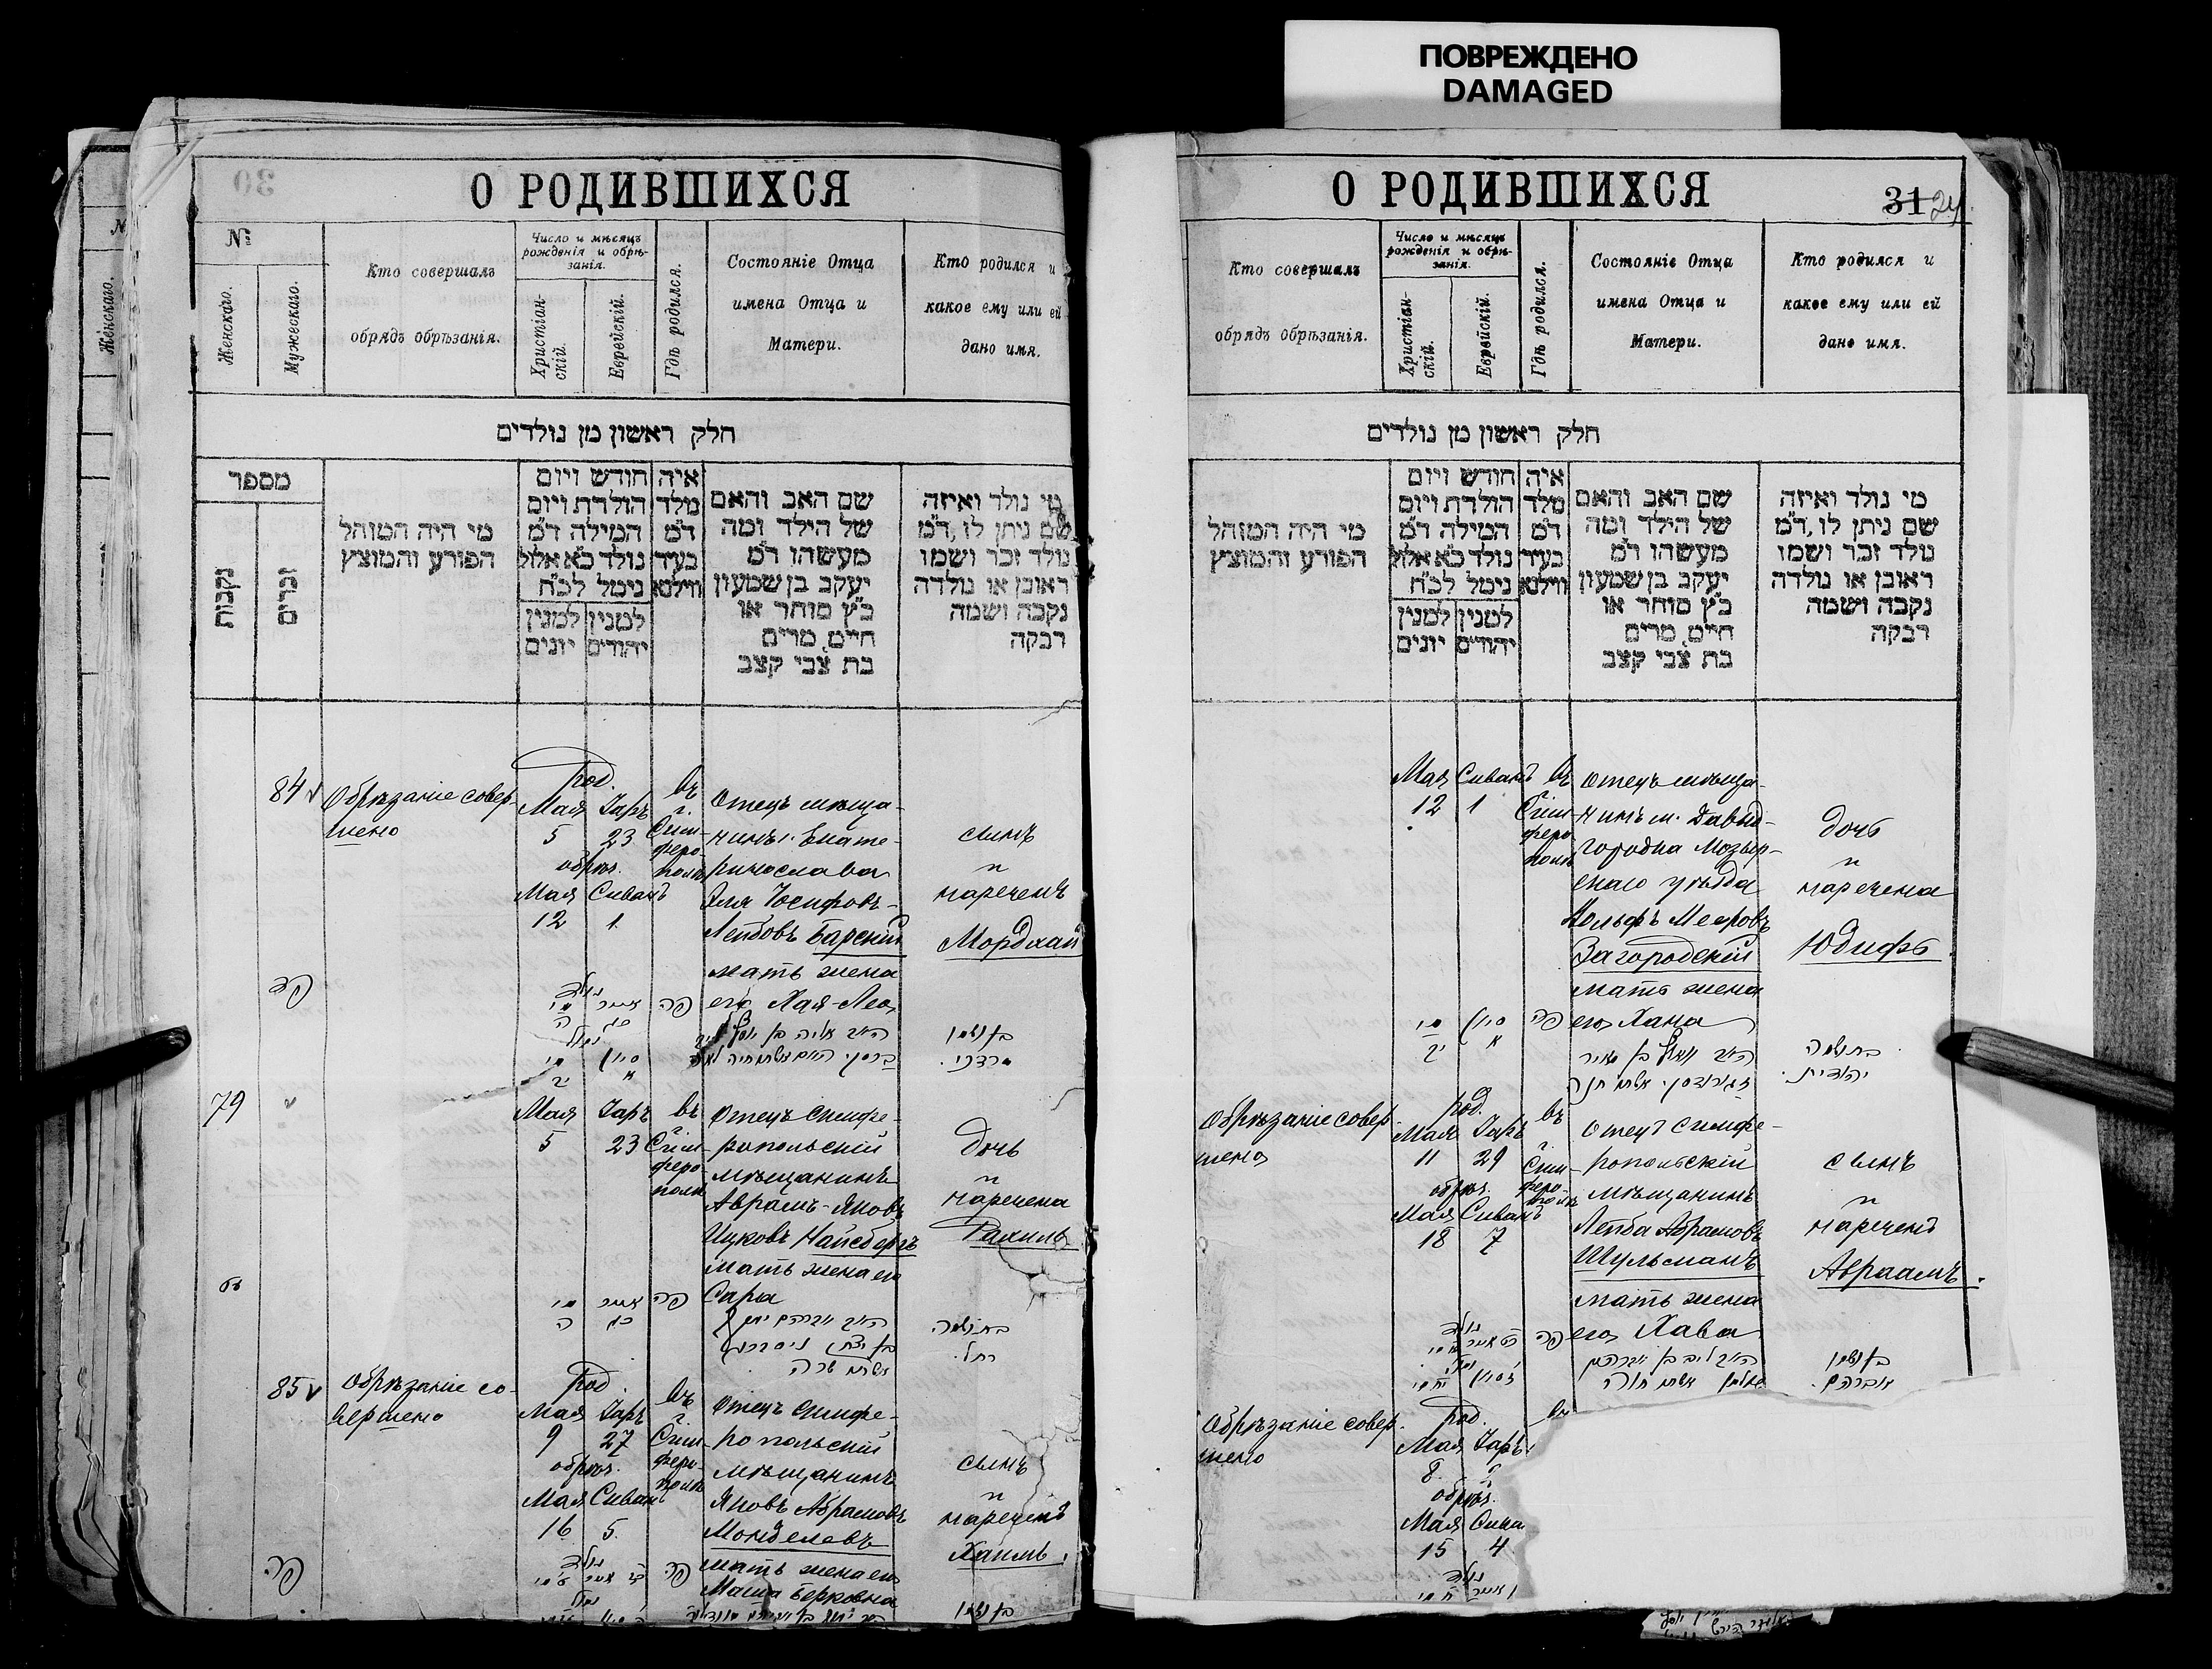 ПОВРЕЖДЕНО
DAMAGED
30
О РОДИВШИХСЯ
№
Женскаго.
Мужескаго.
Кто совершалъ
обрядъ обрѣзанія.
Число и мѣсяцъ
рожденія и обрѣ-
занія.
Христіан-
скій.
Еврейскій.
Гдѣ родился.
Состояніе Отца
имена Отца и
Матери.
Кто родился и
какое ему или ей
дано имя.
חלק ראשון מן נולדים
מספר
נקבות
זכרים
מי היה המוהל
הפורע והמוצץ
חודש ויום
הולדת ויום
המילה ד״מ
נולד כ״א אלול
ניטל לכ״ח
למנין
יונים
למנין
יהודים
איה
מלד
ד״מ
בעיר
ווילנא
שם האב והאם
של הילד ומה
מעשהו ד״מ
יעקב בן שמעון
כ״ץ סוחר או
חיים, מרים
בת צבי קצב
מי נולד ואיזה
שם ניתן לו, ד״מ
נולד זכר ושמו
ראובן או נולדה
נקבה ושמה
רבקה
84
Обрѣзаніе совер-
шено
род.
Мая Іаръ
5 23
обрѣз.
Мая Сиванъ
12 1
въ
г.
Сим-
феро-
полѣ
Отецъ мѣща-
нинъ г. Екате-
ринослава
Эля Іосифовъ-
Лейбовъ Барскій
мать жена
его Хая-Лея
сынъ
и
нареченъ
Мордхай
פד
נולד
אייר
פה
79
Мая Іаръ
5 23
въ
г.
Сим-
феро-
полѣ
Отецъ Симфе-
ропольскій
мѣщанинъ
Абрамъ-Яковъ
Ицковъ Найсбергъ
мать жена его
Сара
дочь
и
наречена
Рахиль
עט
אייר
פה
רחל.
85
Обрѣзаніе со-
вершено
род.
Мая Іаръ
9 27
обрѣз.
Мая Сиванъ
16 5
въ
г.
Сим-
феро-
полѣ
Отецъ Симфе-
ропольскій
мѣщанинъ
Яковъ Абрамовъ
Монделевъ
мать жена его
Маша Берковна
сынъ
и
нареченъ
Хаимъ.
פה
О РОДИВШИХСЯ
31 24
Кто совершалъ
обрядъ обрѣзанія.
Число и мѣсяцъ
рожденія и обрѣ-
занія.
Христіан-
скій.
Еврейскій.
Гдѣ родился.
Состояніе Отца
имена Отца и
Матери.
Кто родился и
какое ему или ей
дано имя.
חלק ראשון מן נולדים
מי היה המוהל
הפורע והמוצץ
חודש ויום
הולדת ויום
המילה ד״מ
נולד כ״א אלול
ניטל לכ״ח
למנין
יונים
למנין
יהודים
איה
מלד
ד״מ
בעיר
ווילנא
שם האב והאם
של הילד ומה
מעשהו ד״מ
יעקב בן שמעון
כ״ץ סוחר או
חיים, מרים
בת צבי קצב
מי נולד ואיזה
שם ניתן לו, ד״מ
נולד זכר ושמו
ראובן או נולדה
נקבה ושמה
רבקה
Мая Сиванъ
12 1
въ
Сим-
феро-
полѣ
Отецъ мѣща-
нинъ м. Давыд-
городка Мозыр-
скаго уѣзда
Вольфъ Мееровъ
Загородскій
мать жена
его Хана
дочь
и
наречена
Юдифь
סיון
פה
יהודית.
Обрѣзаніе совер-
шено
род.
Мая Іаръ
11 29
обрѣз.
Мая Сиванъ
18 7
въ
г.
Сим-
феро-
полѣ
Отецъ Симфе-
ропольскій
мѣщанинъ
Лейба Абрамовъ
Шульманъ
мать жена
его Хава
сынъ
и
нареченъ
Авраамъ.
נולד
פה
אברהם.
Обрѣзаніе совер-
шено
род.
Мая Іаръ
8
обрѣз.
Мая Сива
15 4
въ
נולד